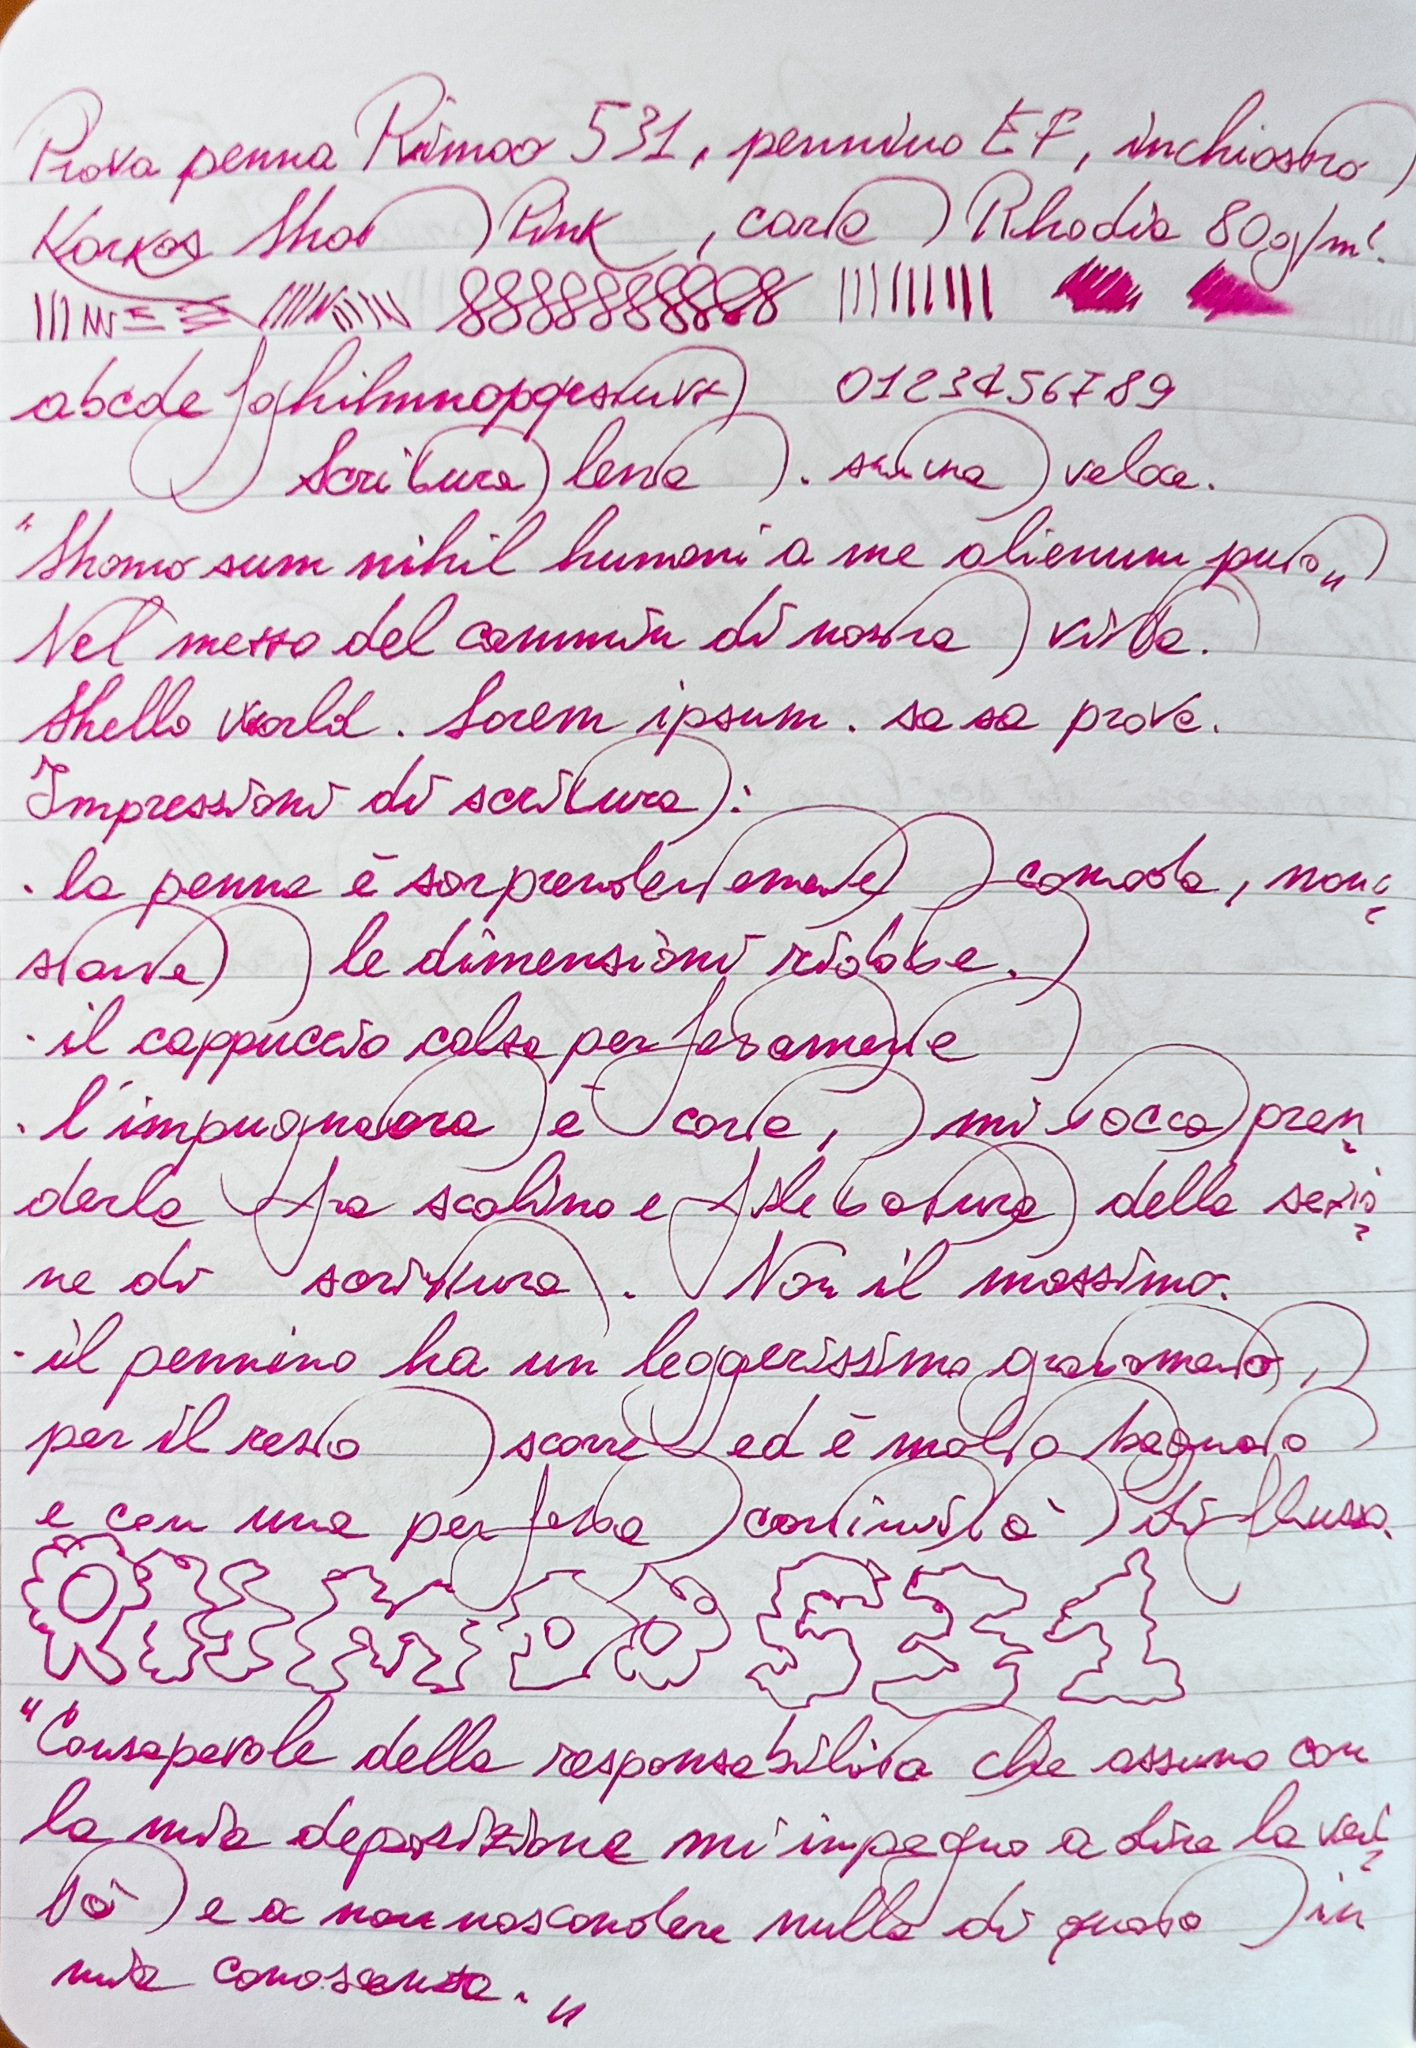 Prova penna Rimoo 531, pennino EF, inchiostro
Karkos Hot Pink, carta Rhodia 80g/m².
abcdefghilmnopqrstuvz 0123456789
Scrittura lenta. scrittura veloce.
"Homo sum nihil humani a me alienum puto"
Nel mezzo del cammin di nostra vita.
Hello world. Lorem ipsum. sa sa prova.
Impressioni di scrittura:
· la penna è sorprendentemente comoda, nono
stante le dimensioni ridotte.
· il cappuccio calza perfettamente
· l'impugnatura è corta, mi tocca pren
derla fra scalino e filettatura della sezio
ne di scrittura. Non il massimo.
· il pennino ha un leggerissimo grattamento,
per il resto scorre ed è molto bagnato
e con una perfetta continuità di flusso.
RIIMOO 531
"Consapevole della responsabilità che assumo con
la mia deposizione mi impegno a dire la veri
tà e a non nascondere nulla di quanto in
mia conoscenza."